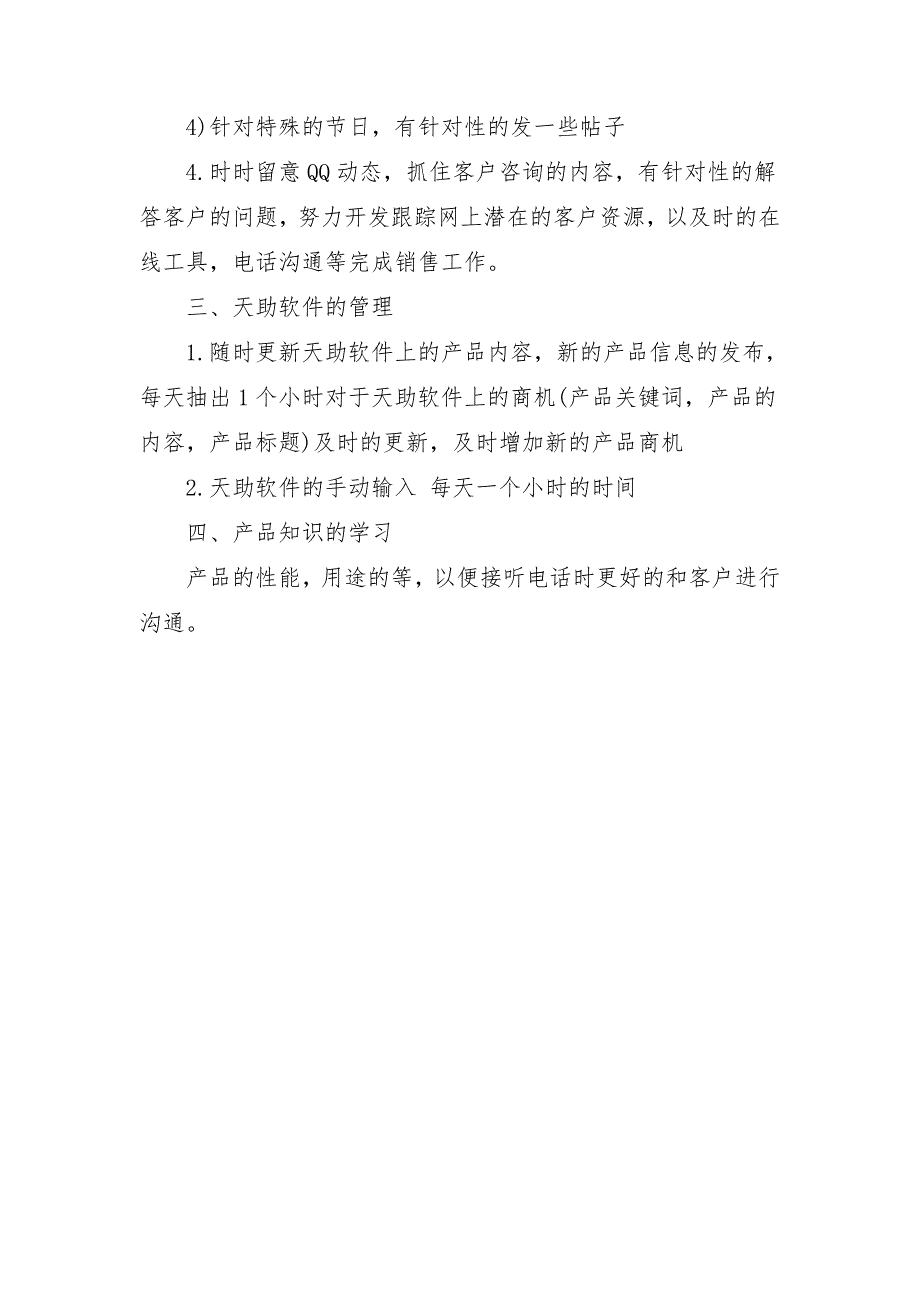 4)针对特殊的节日，有针对性的发一些帖子
4.时时留意QQ动态，抓住客户咨询的内容，有针对性的解
答客户的问题，努力开发跟踪网上潜在的客户资源，以及时的在
线工具，电话沟通等完成销售工作。
三、天助软件的管理
1.随时更新天助软件上的产品内容，新的产品信息的发布，
每天抽出1个小时对于天助软件上的商机(产品关键词，产品的
内容，产品标题)及时的更新，及时增加新的产品商机
2.天助软件的手动输入 每天一个小时的时间
四、产品知识的学习
产品的性能，用途的等，以便接听电话时更好的和客户进行
沟通。